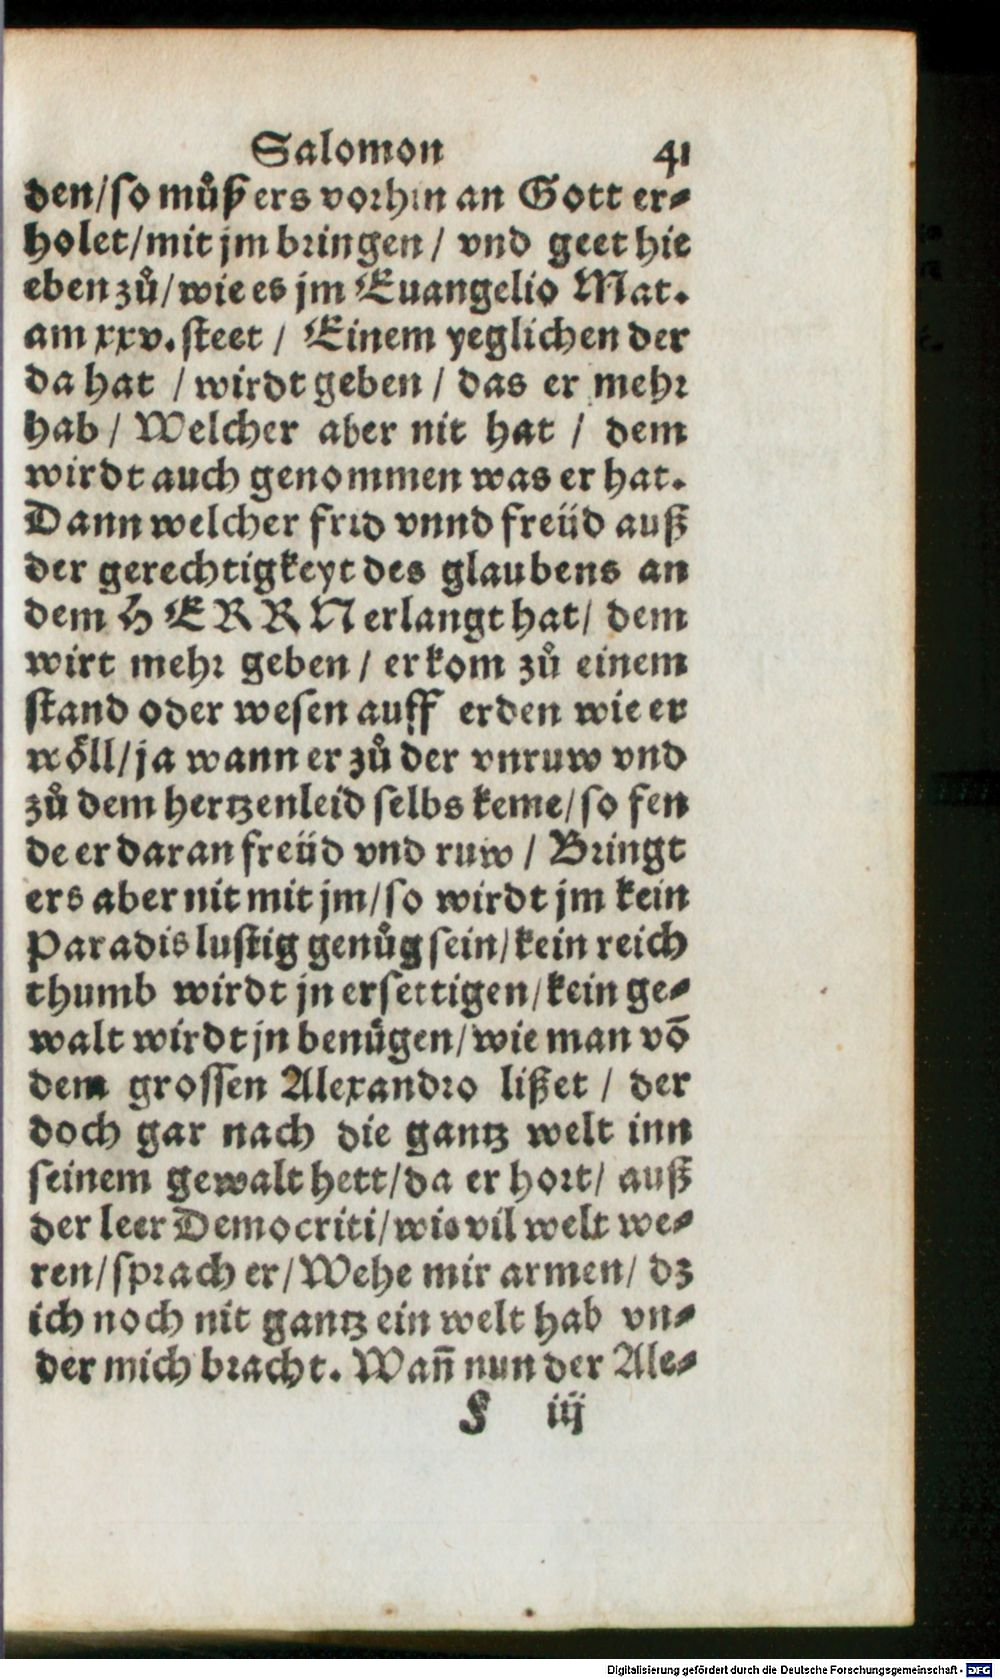 Salomon 41
den/so můß ers vorhin an Gott er⸗
holet/mit jm bringen/ vnd geet hie
eben zů/wie es jm Euangelio Mat.
am xxv. steet / Einem yeglichen der
da hat / wirdt geben / das er mehr
hab / Welcher aber nit hat / dem
wirdt auch genommen was er hat.
Dann welcher frid vnnd freüd auß
der gerechtigkeyt des glaubens an
dem HERRN erlangt hat/ dem
wirt mehr geben / er kom zů einem
stand oder wesen auff erden wie er
wöll/ja wann er zů der vnruw vnd
zů dem hertzenleid selbs keme/so fen
de er daran freüd vnd ruw / Bringt
ers aber nit mit jm/so wirdt jm kein
Paradis lustig genůg sein/kein reich
thumb wirdt jn ersettigen/kein ge⸗
walt wirdt jn benügen/wie man võ
dem grossen Alexandro lißet / der
doch gar nach die gantz welt inn
seinem gewalt hett/da er hort/ auß
der leer Democriti/wie vil welt we⸗
ren/sprach er/Wehe mir armen/ dz
ich noch nit gantz ein welt hab vn⸗
der mich bracht. Wañ nun der Ale⸗
F iij
Digitalisierung gefördert durch die Deutsche Forschungsgemeinschaft - DFG